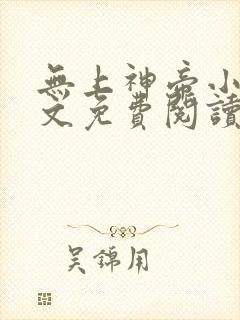 無上神帝小
文免費閱讀
吳錦用